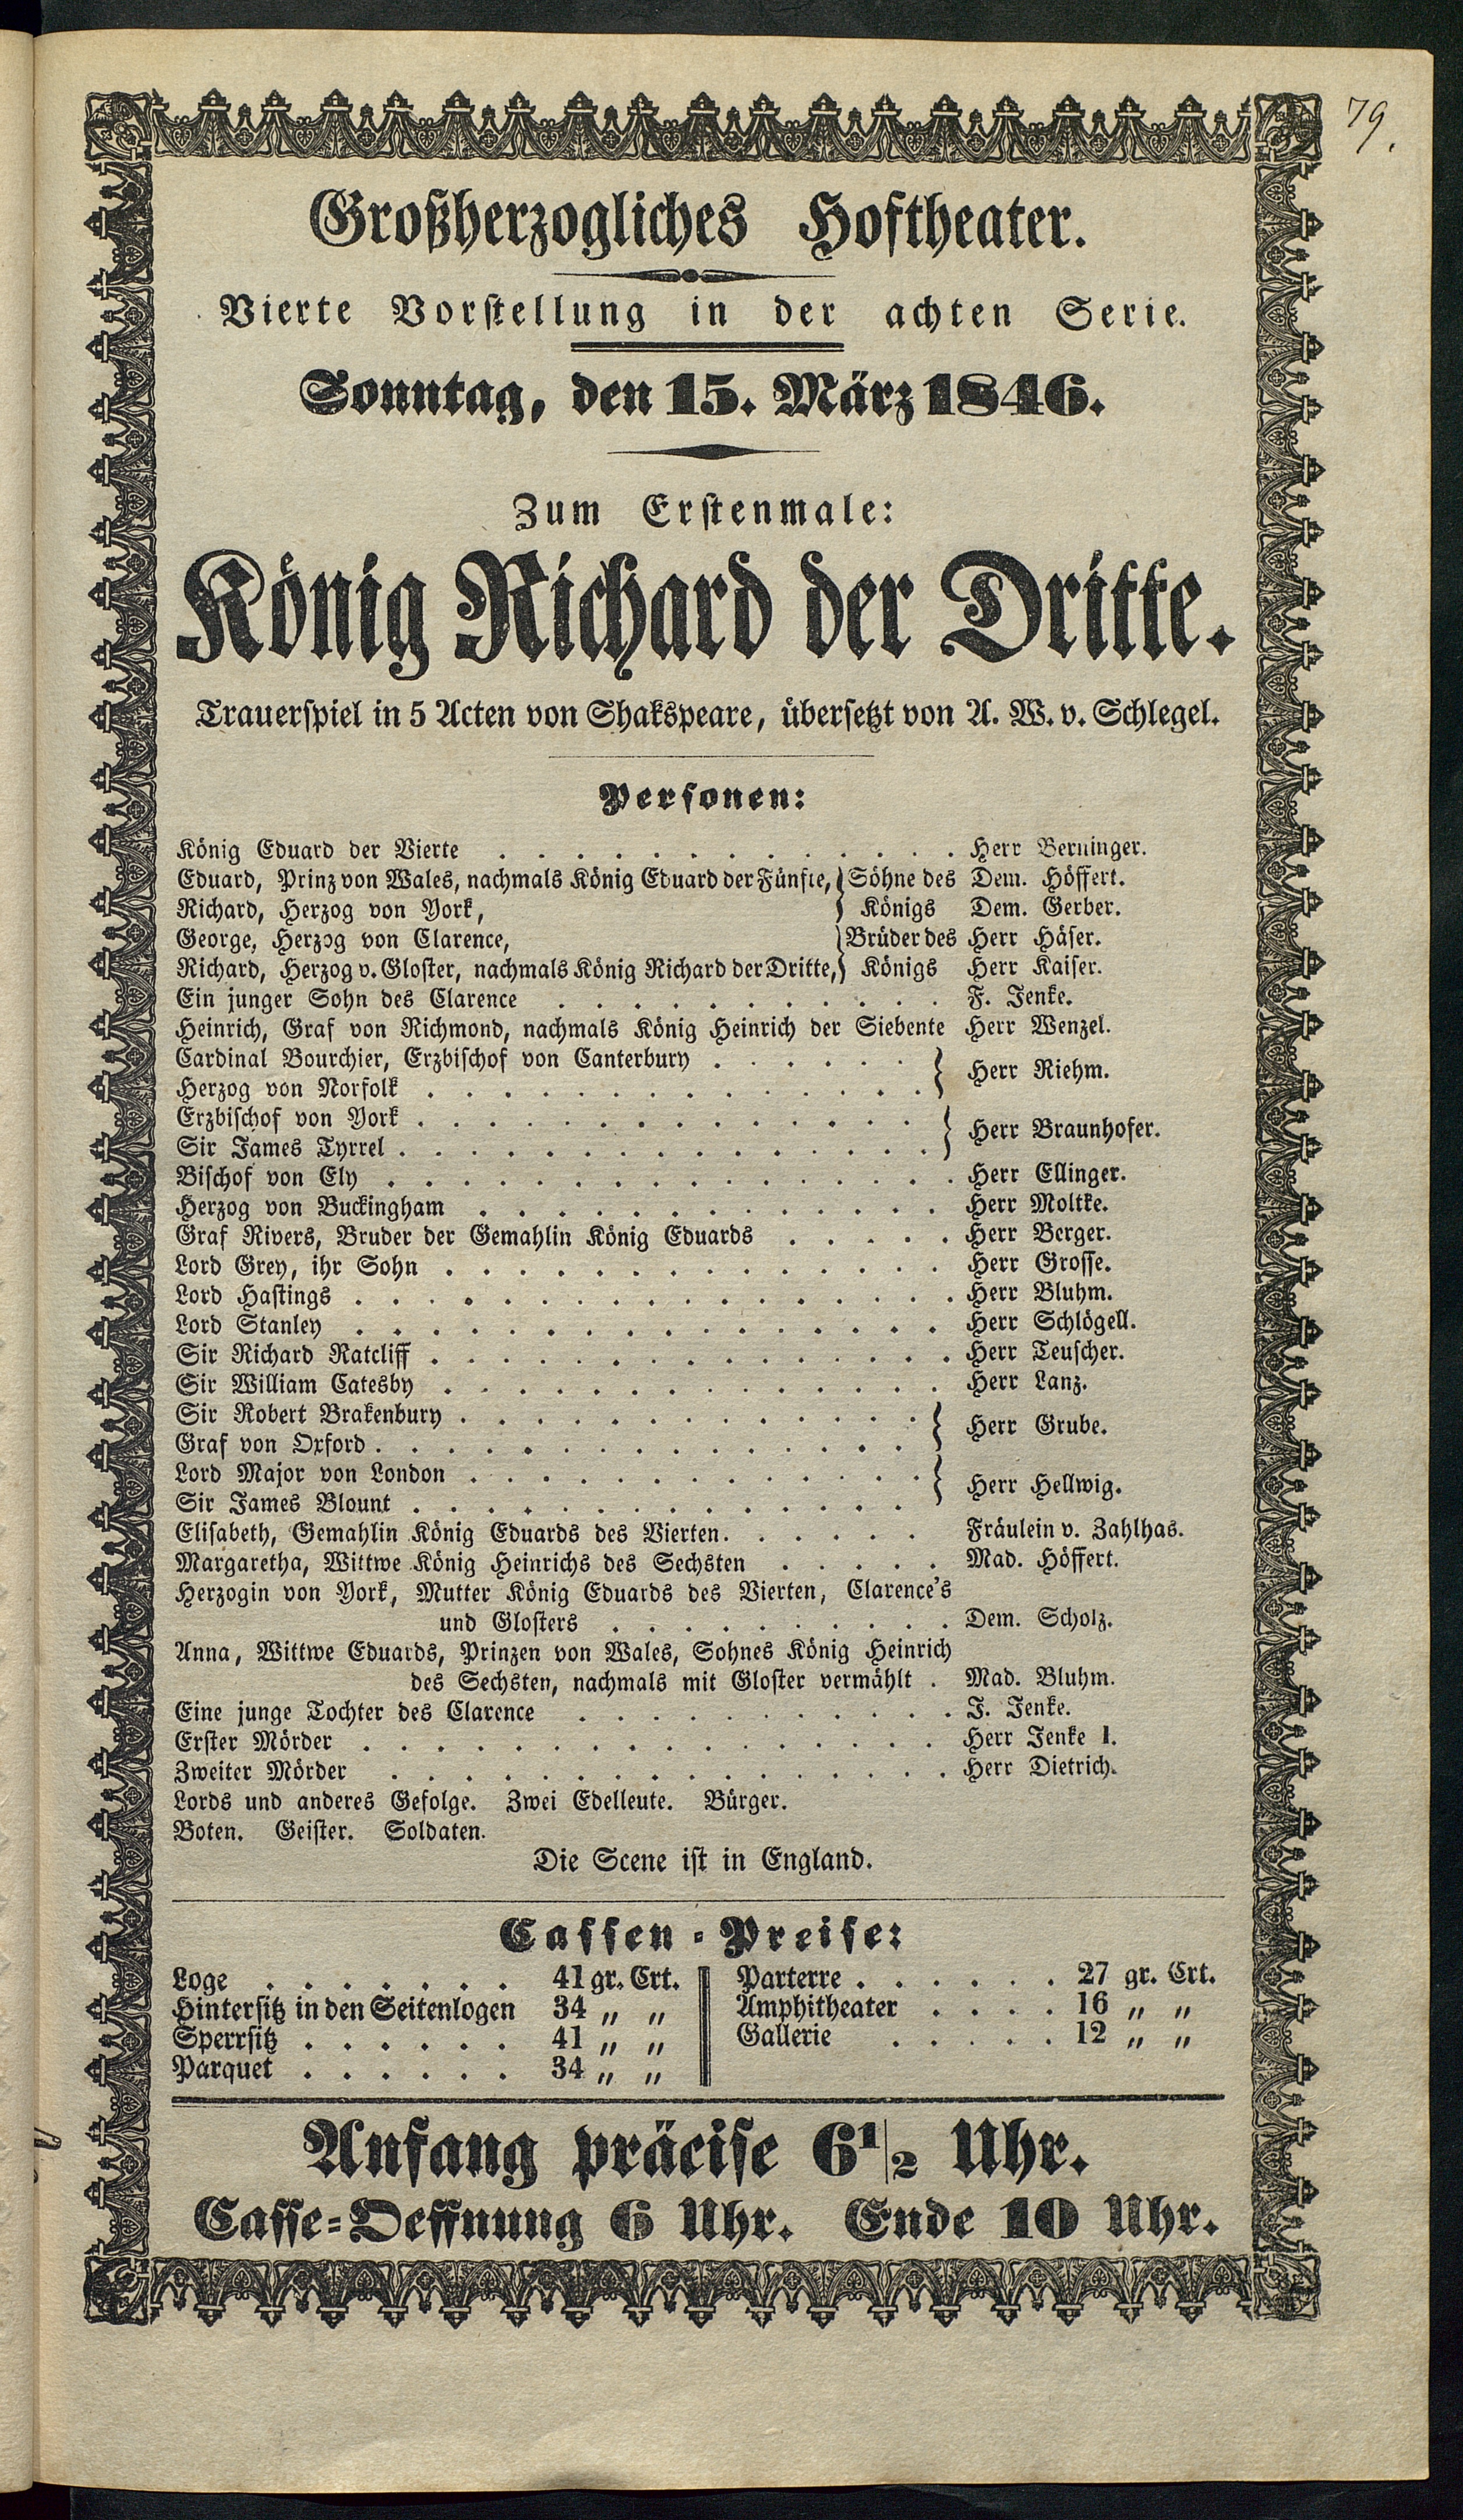 79.
Großherzogliches Hoftheater.
Vierte Vorstellung in der achten Serie.
Sonntag, den 15. März 1846.
Zum Erstenmale:
König Richard der Dritte.
Trauerspiel in 5 Acten von Shakspeare, übersetzt von A. W. v. Schlegel.
Personen:
König Eduard der Vierte . . . . . . . . . . . . . Herr Berninger.
Eduard, Prinz von Wales, nachmals König Eduard der Fünfte, } Söhne des Dem. Höffert.
Richard, Herzog von York, } Königs Dem. Gerber.
George, Herzog von Clarence, } Brüder des Herr Häser.
Richard, Herzog v. Gloster, nachmals König Richard der Dritte, } Königs Herr Kaiser.
Ein junger Sohn des Clarence . . . . . . . . . . . F. Jenke.
Heinrich, Graf von Richmond, nachmals König Heinrich der Siebente Herr Wenzel.
Cardinal Bourchier, Erzbischof von Canterbury . . . . . . }
Herr Riehm.
Herzog von Norfolk . . . . . . . . . . . . . . }
Erzbischof von York . . . . . . . . . . . . . . }
Herr Braunhofer.
Sir James Tyrrel . . . . . . . . . . . . . . . }
Bischof von Ely . . . . . . . . . . . . . . . . Herr Ellinger.
Herzog von Buckingham . . . . . . . . . . . . . Herr Moltke.
Graf Rivers, Bruder der Gemahlin König Eduards . . . . . Herr Berger.
Lord Grey, ihr Sohn . . . . . . . . . . . . . . Herr Grosse.
Lord Hastings . . . . . . . . . . . . . . . . . Herr Bluhm.
Lord Stanley . . . . . . . . . . . . . . . . Herr Schlögell.
Sir Richard Ratcliff . . . . . . . . . . . . . . . Herr Teuscher.
Sir William Catesby . . . . . . . . . . . . . . Herr Lanz.
Sir Robert Brakenbury . . . . . . . . . . . . . }
Herr Grube.
Graf von Oxford . . . . . . . . . . . . . . . }
Lord Major von London . . . . . . . . . . . . . }
Herr Hellwig.
Sir James Blount . . . . . . . . . . . . . . }
Elisabeth, Gemahlin König Eduards des Vierten . . . . . . Fräulein v. Zahlhas.
Margaretha, Wittwe König Heinrichs des Sechsten . . . . . Mad. Höffert.
Herzogin von York, Mutter König Eduards des Vierten, Clarence's
und Glosters . . . . . . . . . . Dem. Scholz.
Anna, Wittwe Eduards, Prinzen von Wales, Sohnes König Heinrich
des Sechsten, nachmals mit Gloster vermählt . Mad. Bluhm.
Eine junge Tochter des Clarence . . . . . . . . . . . J. Jenke.
Erster Mörder . . . . . . . . . . . . . . . . Herr Jenke I.
Zweiter Mörder . . . . . . . . . . . . . . . . Herr Dietrich.
Lords und anderes Gefolge. Zwei Edelleute. Bürger.
Boten. Geister. Soldaten.
Die Scene ist in England.
Cassen-Preise:
Loge . . . . . . . 41 gr. Crt.
Hintersitz in den Seitenlogen 34 „ „
Sperrsitz . . . . . . 41 „ „
Parquet . . . . . . 34 „ „
Parterre . . . . . . 27 gr. Crt.
Amphitheater . . . . 16 „ „
Gallerie . . . . . 12 „ „
Anfang präcise 6 1/2 Uhr.
Casse-Oeffnung 6 Uhr. Ende 10 Uhr.